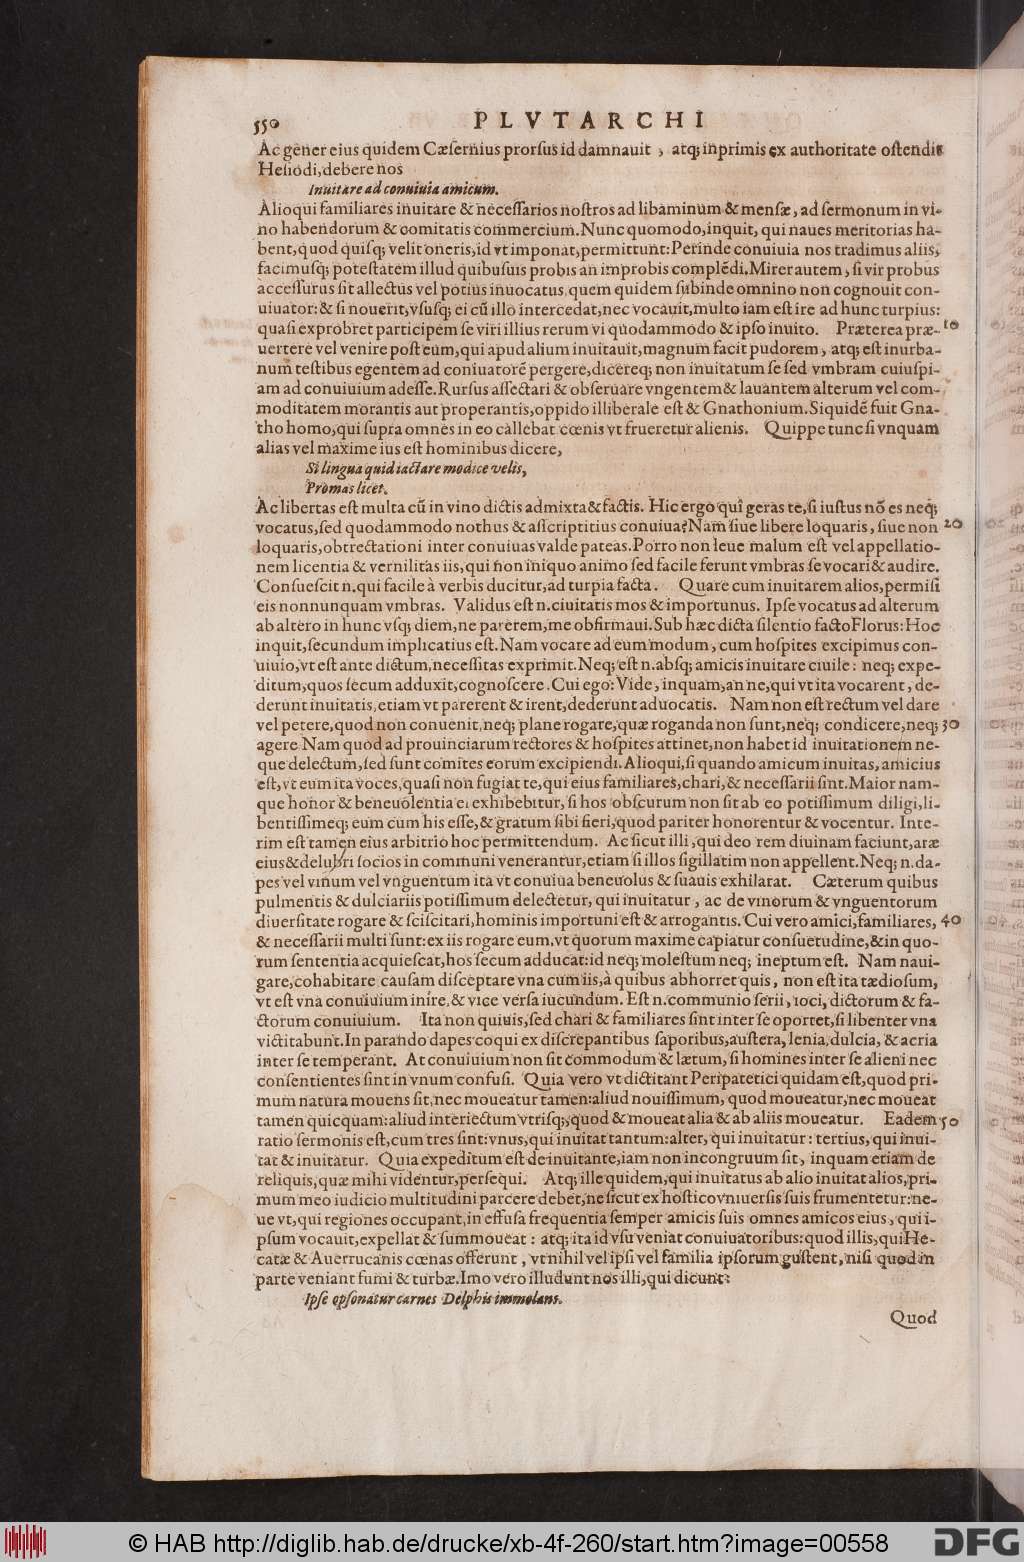 550 PLVTARCHI
Ac gener eius quidem Cæsernius prorsus id damnauit, atq; inprimis ex authoritate ostendit
Hesiodi, debere nos
Inuitare ad conuiuia amicum.
Alioqui familiares inuitare & necessarios nostros ad libaminum & mensæ, ad sermonum in vi-
no habendorum & comitatis commercium. Nunc quomodo, inquit, qui naues meritorias ha-
bent, quod quisq; velit oneris, id vt imponat, permittunt: Perinde conuiuia nos tradimus aliis,
facimusq; potestatem illud quibusuis probis an improbis complēdi. Mirer autem, si vir probus
accessurus sit allectus vel potius inuocatus, quem quidem subinde omnino non cognouit con-
uiuator: & si nouerit, vsusq; ei cū illo intercedat, nec vocauit, multo iam est ire ad hunc turpius:
quasi exprobret participem se viri illius rerum vi quodammodo & ipso inuito. Præterea præ- 10
uertere vel venire post eum, qui apud alium inuitauit, magnum facit pudorem, atq; est inurba-
num testibus egentem ad conuiuatorē pergere, dicereq; non inuitatum se sed vmbram cuiuspi-
am ad conuiuium adesse. Rursus assectari & obseruare vngentem & lauantem alterum vel com-
moditatem morantis aut properantis, oppido illiberale est & Gnathonium. Siquidē fuit Gna-
tho homo, qui supra omnes in eo callebat cœnis vt frueretur alienis. Quippe tunc si vnquam
alias vel maxime ius est hominibus dicere,
Si lingua quid iactare modice velis,
Promas licet.
Ac libertas est multa cū in vino dictis admixta & factis. Hic ergo quî geras te, si iustus nō es neq;
vocatus, sed quodammodo nothus & asscriptitius conuiua? Nam siue libere loquaris, siue non 20
loquaris, obtrectationi inter conuiuas valde pateas. Porro non leue malum est vel appellatio-
nem licentia & vernilitas iis, qui non iniquo animo sed facile ferunt vmbras se vocari & audire.
Consuescit n. qui facile à verbis ducitur, ad turpia facta. Quare cum inuitarem alios, permisi
eis nonnunquam vmbras. Validus est n. ciuitatis mos & importunus. Ipse vocatus ad alterum
ab altero in hunc vsq; diem, ne parerem, me obfirmaui. Sub hæc dicta silentio facto Florus: Hoc
inquit, secundum implicatius est. Nam vocare ad eum modum, cum hospites excipimus con-
uiuio, vt est ante dictum, necessitas exprimit. Neq; est n. absq; amicis inuitare ciuile: neq; expe-
ditum, quos secum adduxit, cognoscere. Cui ego: Vide, inquam, an ne, qui vt ita vocarent, de-
derunt inuitatis, etiam vt parerent & irent, dederunt aduocatis. Nam non est rectum vel dare
vel petere, quod non conuenit, neq; plane rogare, quæ roganda non sunt, neq; condicere, neq; 30
agere Nam quod ad prouinciarum rectores & hospites attinet, non habet id inuitationem ne-
que delectum, sed sunt comites eorum excipiendi. Alioqui, si quando amicum inuitas, amicius
est, vt eum ita voces, quasi non fugiat te, qui eius familiares, chari, & necessarii sint. Maior nam-
que honor & beneuolentia ei exhibebitur, si hos obscurum non sit ab eo potissimum diligi, li-
bentissimeq; eum cum his esse, & gratum sibi fieri, quod pariter honorentur & vocentur. Inte-
rim est tamen eius arbitrio hoc permittendum. Ac sicut illi, qui deo rem diuinam faciunt, aræ
eius & delubri socios in communi venerantur, etiam si illos sigillatim non appellent. Neq; n. da-
pes vel vinum vel vnguentum ita vt conuiua beneuolus & suauis exhilarat. Cæterum quibus
pulmentis & dulciariis potissimum delectetur, qui inuitatur, ac de vinorum & vnguentorum
diuersitate rogare & sciscitari, hominis importuni est & arrogantis. Cui vero amici, familiares, 40
& necessarii multi sunt: ex iis rogare eum, vt quorum maxime capiatur consuetudine, & in quo-
rum sententia acquiescat, hos secum adducat: id neq; molestum neq; ineptum est. Nam naui-
gare, cohabitare causam disceptare vna cum iis, à quibus abhorret quis, non est ita tædiosum,
vt est vna conuiuium inire, & vice versa iucundum. Est n. communio serii, ioci, dictorum & fa-
ctorum conuiuium. Ita non quiuis, sed chari & familiares sint inter se oportet, si libenter vna
victitabunt. In parando dapes coqui ex discrepantibus saporibus, austera, lenia, dulcia, & acria
inter se temperant. At conuiuium non sit commodum & lætum, si homines inter se alieni nec
consentientes sint in vnum confusi. Quia vero vt dictitant Peripatetici quidam est, quod pri-
mum natura mouens sit, nec moueatur tamen: aliud nouissimum, quod moueatur, nec moueat
tamen quicquam: aliud interiectum vtrisq;, quod & moueat alia & ab aliis moueatur. Eadem 50
ratio sermonis est, cum tres sint: vnus, qui inuitat tantum: alter, qui inuitatur: tertius, qui inui-
tat & inuitatur. Quia expeditum est de inuitante, iam non incongruum sit, inquam etiam de
reliquis, quæ mihi videntur, persequi. Atq; ille quidem, qui inuitatus ab alio inuitat alios, pri-
mum meo iudicio multitudini parcere debet, ne sicut ex hostico vniuersis suis frumentetur: ne-
ue vt, qui regiones occupant, in effusa frequentia semper amicis suis omnes amicos eius, qui i-
psum vocauit, expellat & summoueat: atq; ita id vsu veniat conuiuatoribus: quod illis, qui He-
catæ & Auerrucanis cœnas offerunt, vt nihil vel ipsi vel familia ipsorum gustent, nisi quod in
parte veniant fumi & turbæ. Imo vero illudunt nos illi, qui dicunt:
Ipse opsonatur carnes Delphis immolans.
Quod
© HAB http://diglib.hab.de/drucke/xb-4f-260/start.htm?image=00558 DFG